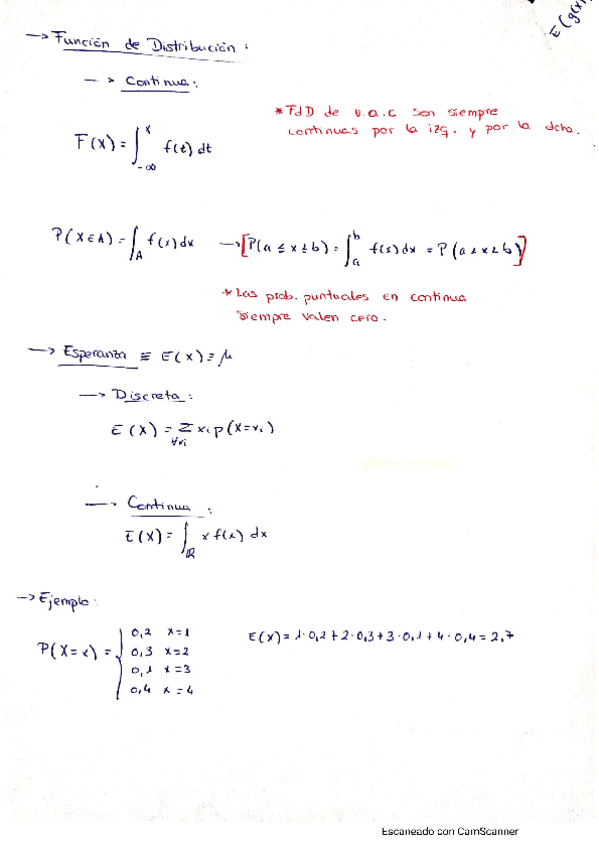 E(g(x)
→ Función de Distribución :
→ Continua :
* FdD de v.a.c son siempre
continuas por la izq. y por la dcha.
F(x) = ∫_{-∞}^{x} f(t) dt
P(X∈A) = ∫_A f(x)dx → [P(a ≤ x ≥ b) = ∫_a^b f(x)dx = P(a < x < b)]
* Las prob. puntuales en continua
siempre valen cero.
→ Esperanza ≡ E(x) = μ
→ Discreta :
E(X) = Σ_{∀xi} xi p(X=xi)
→ Continua :
E(X) = ∫_ℝ x f(x) dx
→ Ejemplo :
P(X=x) = { 0,2 x=1
0,3 x=2
0,1 x=3
0,4 x=4
E(x) = 1·0,2+2·0,3+3·0,1+4·0,4 = 2,7
Escaneado con CamScanner